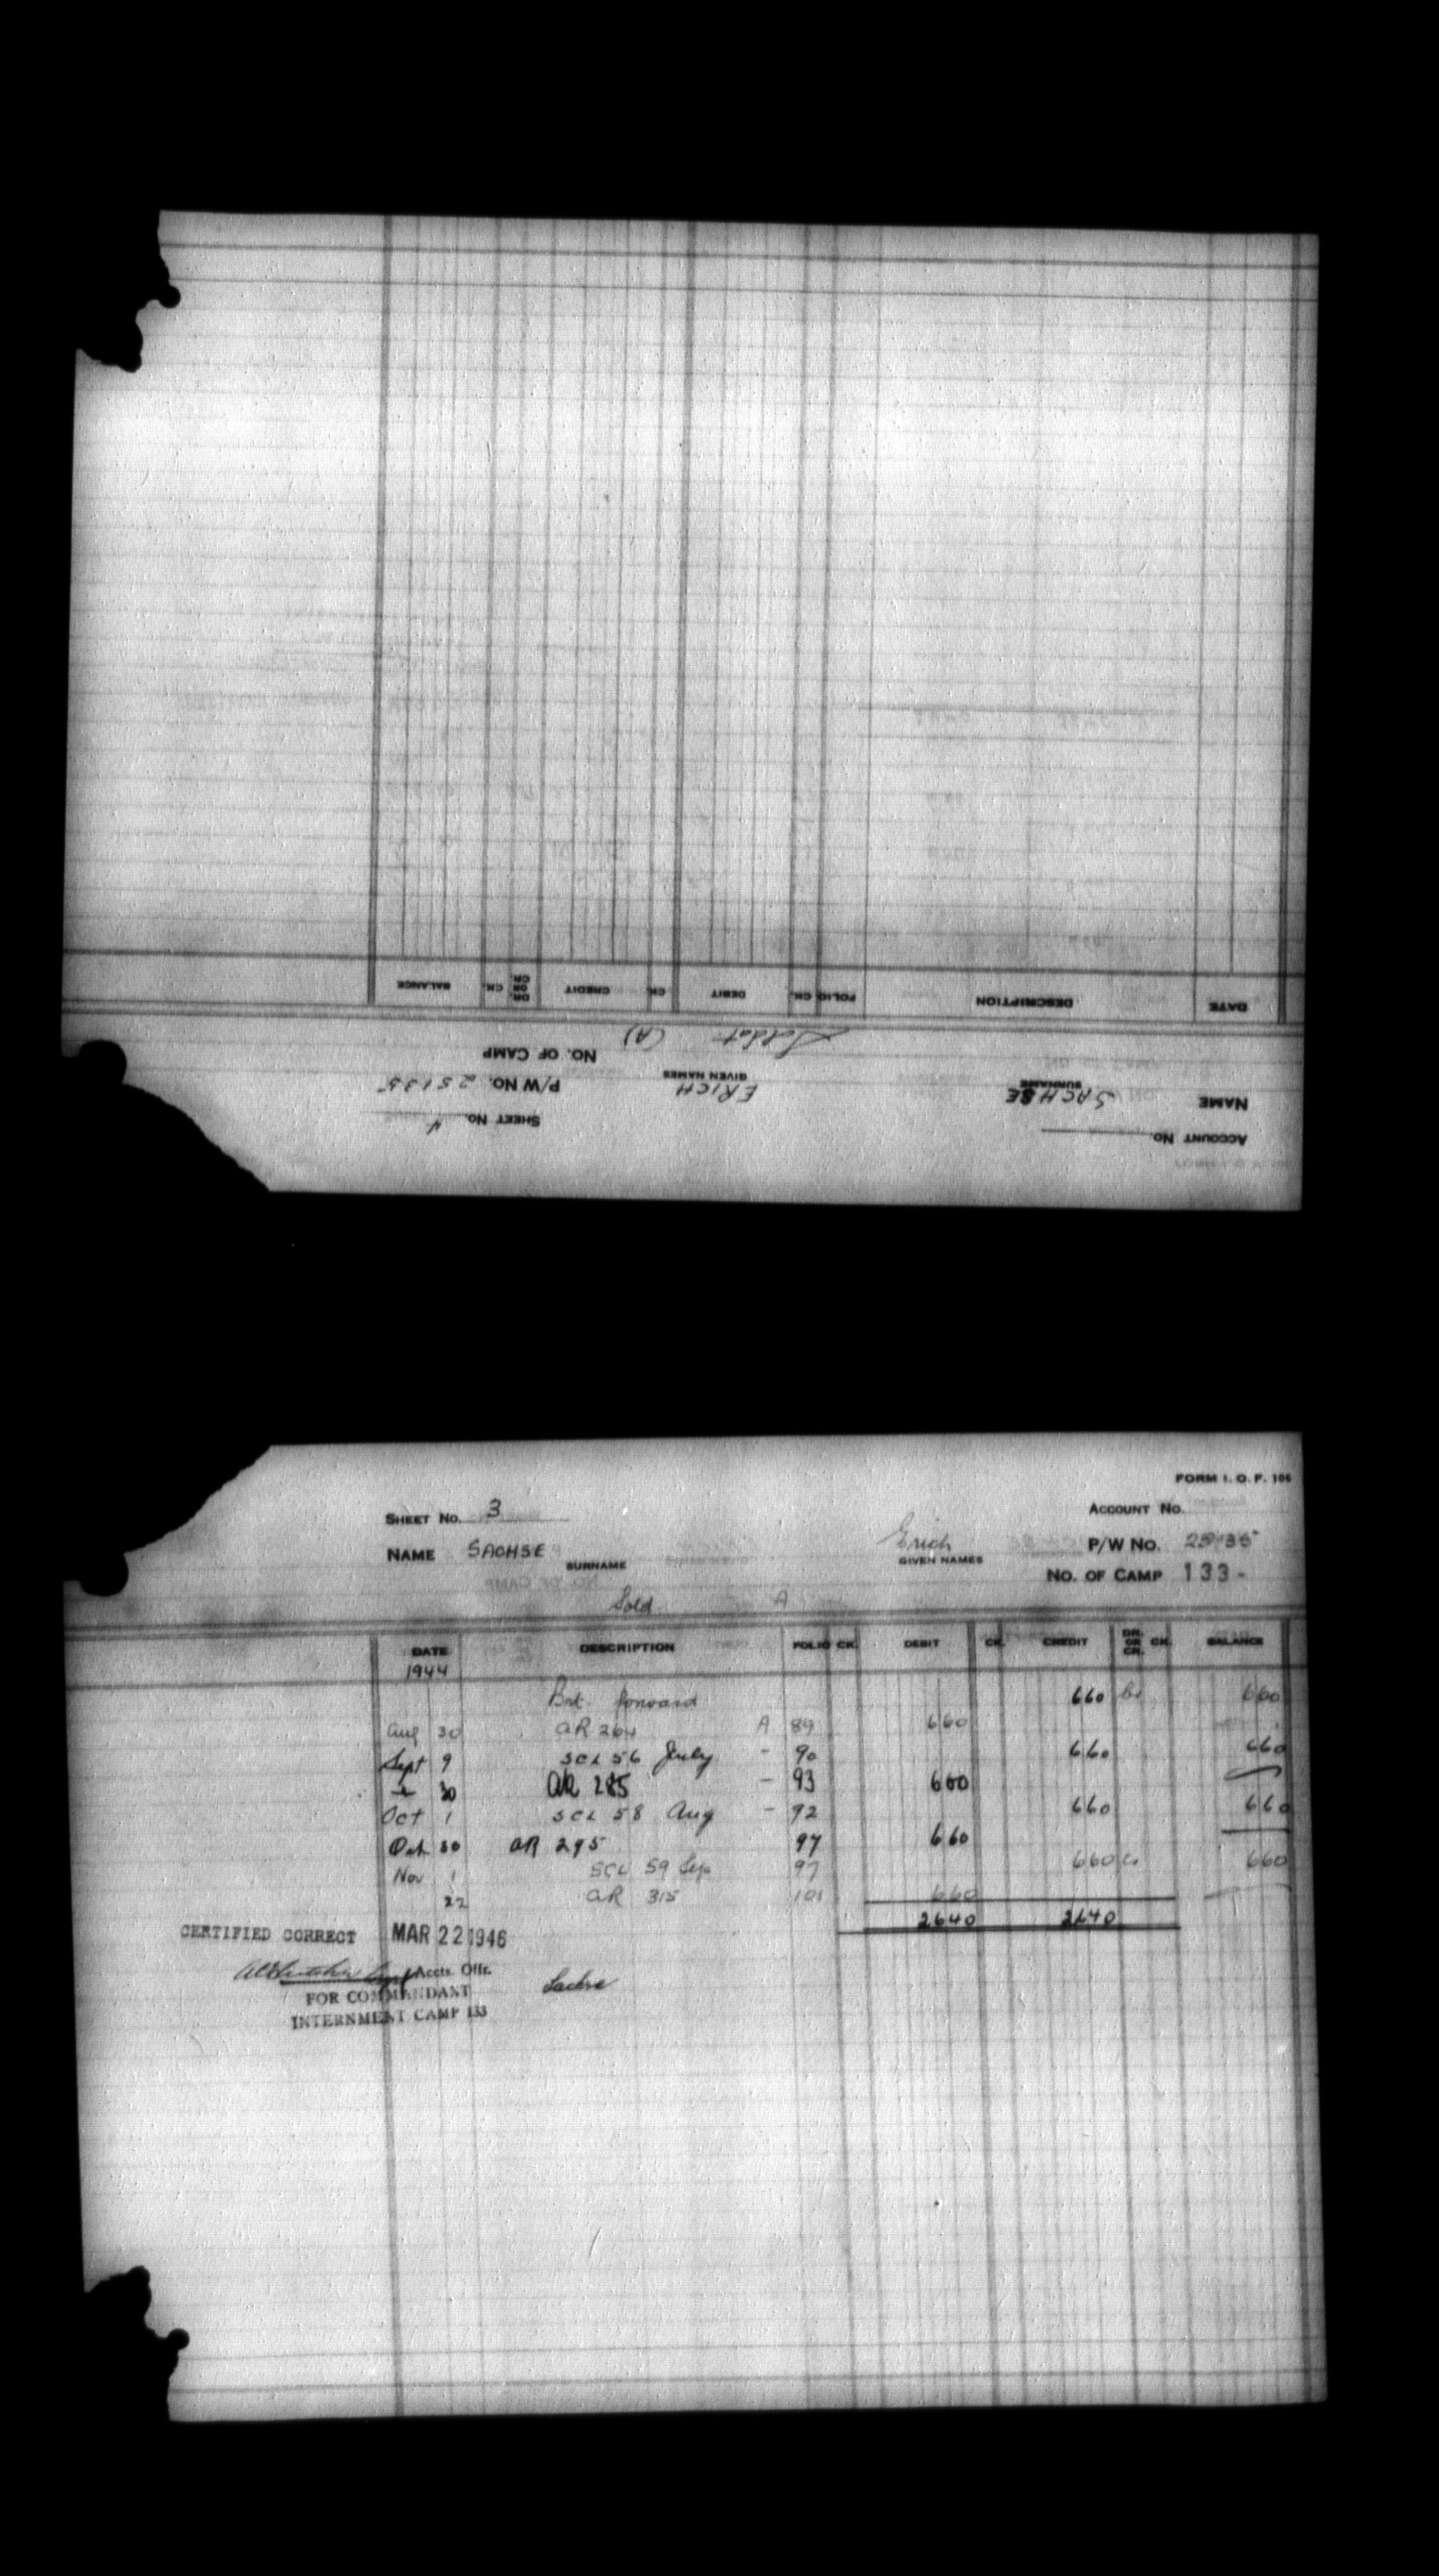 ACCOUNT No.
SHEET No. 4
NAME SACHSE ERICH P/W No. 25135
SURNAME GIVEN NAMES
NO. OF CAMP
Soldat (A)
DATE DESCRIPTION FOLIO CK. DEBIT CK. CREDIT DR. OR CR. CK. BALANCE
FORM I. O. F. 106
SHEET No. 3 ACCOUNT No.
NAME SACHSE Erich P/W No. 25135
SURNAME GIVEN NAMES
NO. OF CAMP 133-
Sold. A
DATE DESCRIPTION FOLIO CK. DEBIT CK. CREDIT DR. OR CR. CK. BALANCE
1944
Brt. forward 660 660
Aug 30 AR 264 A 89 660
Sept 9 SCL 56 July - 90 660 660
30 AR 285 - 93 660
Oct 1 SCL 58 Aug - 92 660 660
Oct 30 AR 295 97 660
Nov 1 SCL 59 Sep 97 660 cr 660
22 AR 315 101 660
2640 2640
CERTIFIED CORRECT MAR 22 1946
Accts. Offr.
FOR COMMANDANT
INTERNMENT CAMP 133
Sachse